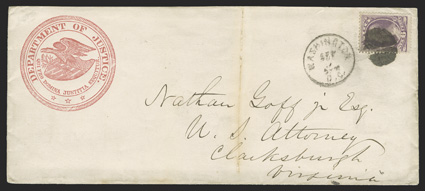 DEPARTMENT OF JUSTICE
QUI PRO DOMINA JUSTITIA SEQUITUR
WASHINGTON
SEP
D.C.
Nathan Goff jr Esq.
U. S. Attorney
Clarksburgh
Virginia